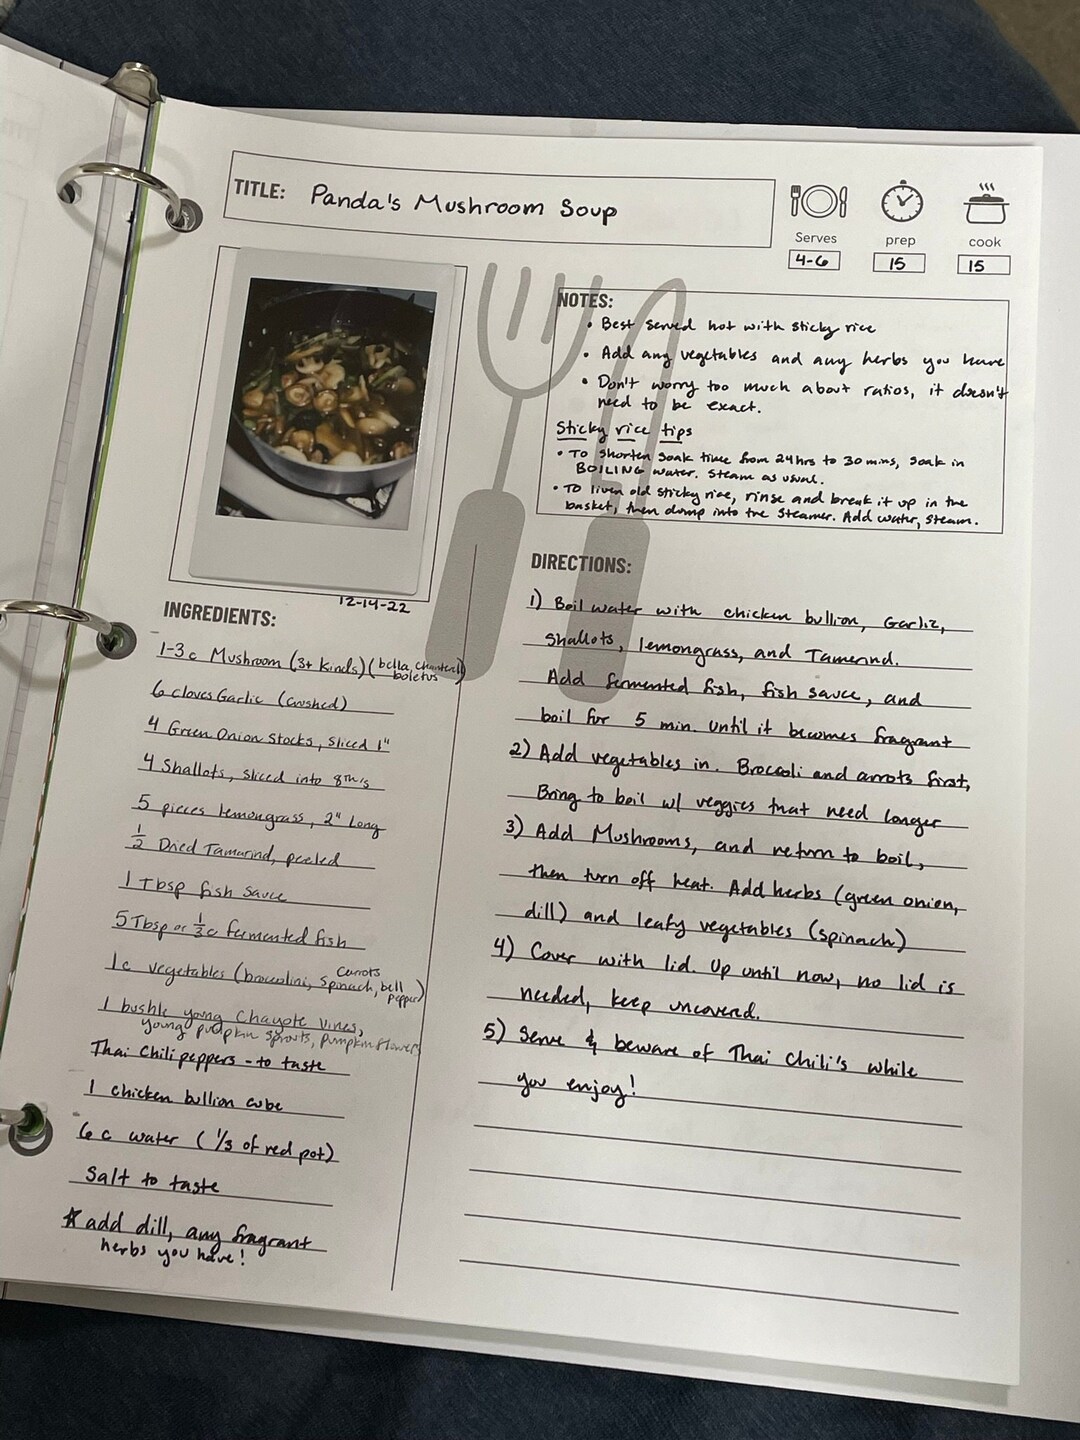 TITLE: Panda's Mushroom Soup
Serves
4-6
prep
15
cook
15
NOTES:
• Best served hot with sticky rice
• Add any vegetables and any herbs you have
• Don't worry too much about ratios, it doesn't
need to be exact.
Sticky rice tips
• To shorten soak time from 24hrs to 30 mins, soak in
BOILING water. Steam as usual.
• To liven old sticky rice, rinse and break it up in the
basket, then dump into the steamer. Add water, steam.
12-14-22
INGREDIENTS:
1-3c Mushroom (3+ kinds) (bella, chanterell
boletus)
6 cloves Garlic (crushed)
4 Green Onion Stocks, sliced 1"
4 Shallots, sliced into 8th's
5 pieces lemongrass, 2" Long
1/2 Dried Tamarind, peeled
1 Tbsp fish sauce
5 Tbsp or 1/3c fermented fish
1c vegetables (broccolini, spinach, carrots, bell
pepper)
1 bushle young Chayote vines,
young pumpkin sprouts, pumpkin flowers
Thai Chili peppers - to taste
1 chicken bullion cube
6 c water (1/3 of red pot)
Salt to taste
☆ add dill, any fragrant
herbs you have!
DIRECTIONS:
1) Boil water with chicken bullion, Garlic,
Shallots, lemongrass, and Tamerind.
Add fermented fish, fish sauce, and
boil for 5 min. until it becomes fragrant
2) Add vegetables in. Broccoli and arrots first,
Bring to boil w/ veggies that need longer
3) Add Mushrooms, and return to boil,
then turn off heat. Add herbs (green onion,
dill) and leafy vegetables (spinach)
4) Cover with lid. Up until now, no lid is
needed, keep uncovered.
5) Serve & beware of Thai Chili's while
you enjoy!